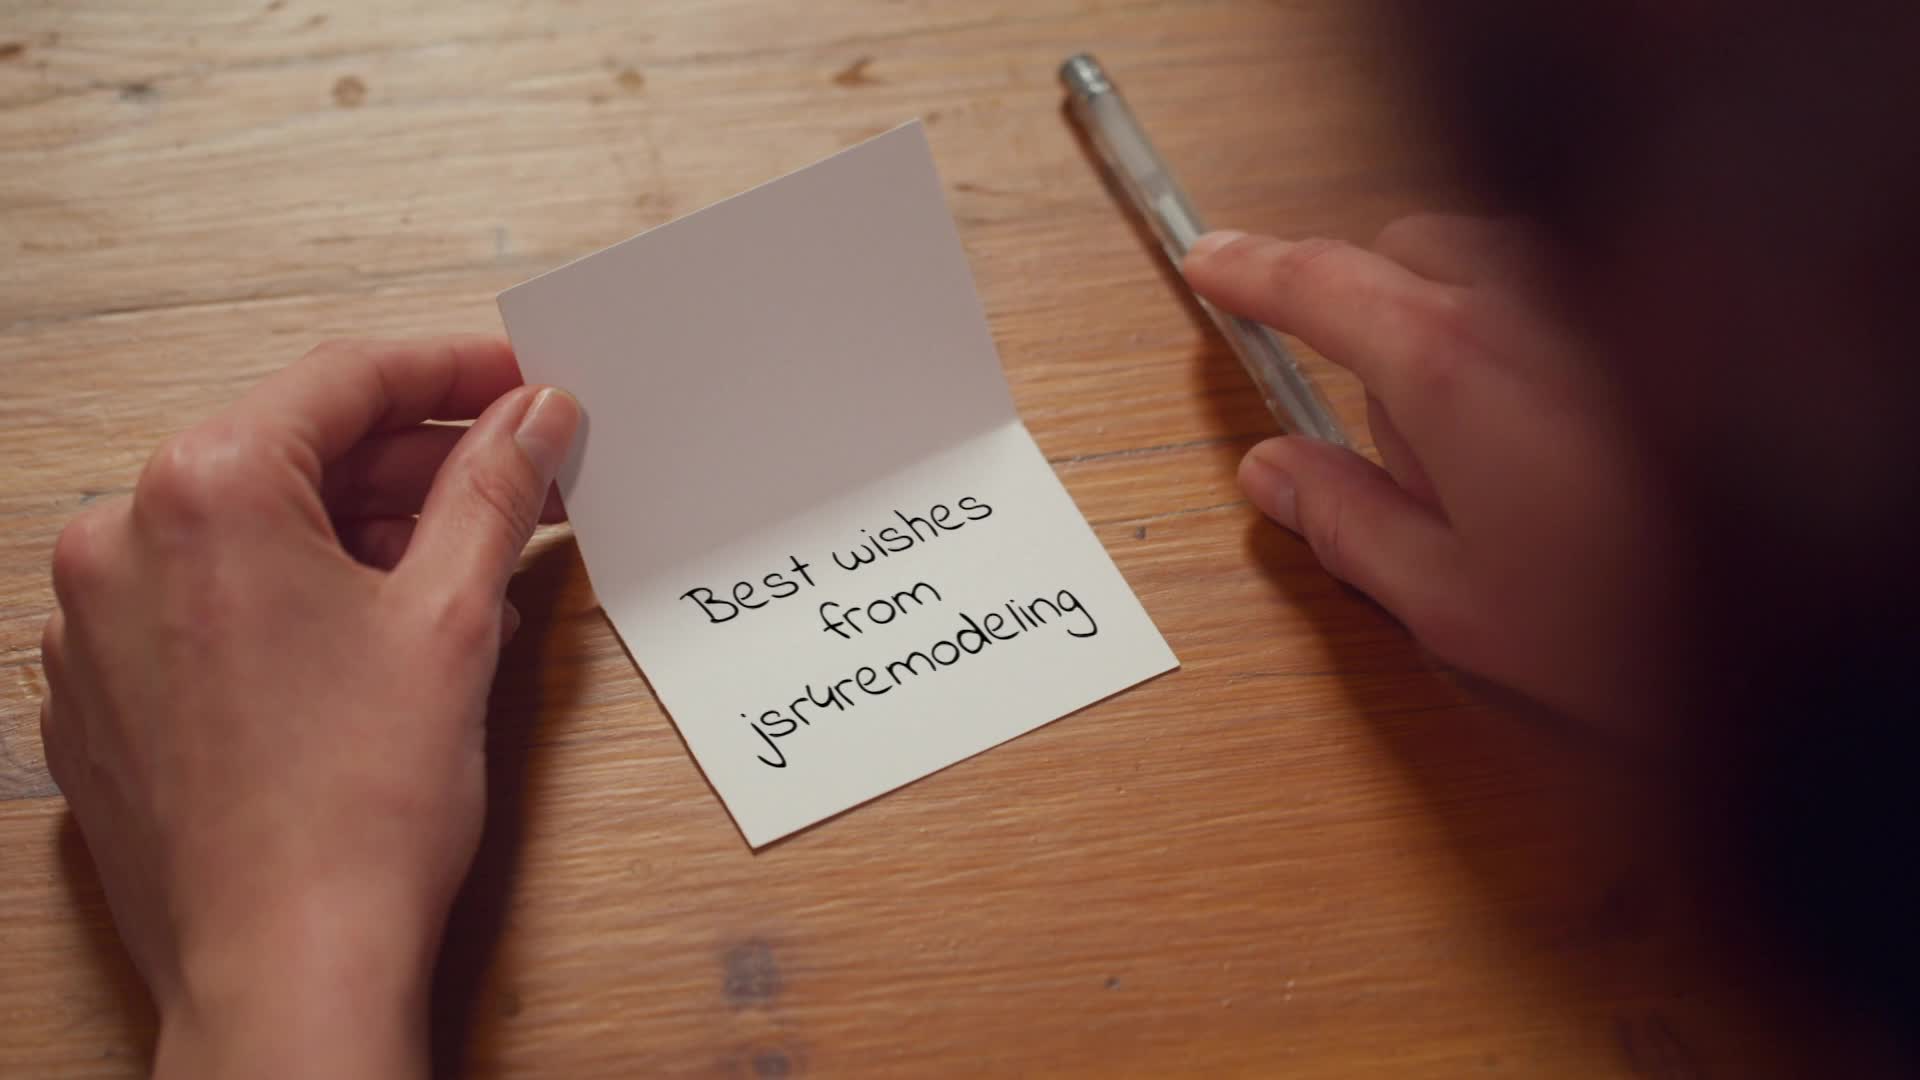 Best wishes
from
jsr4remodeling